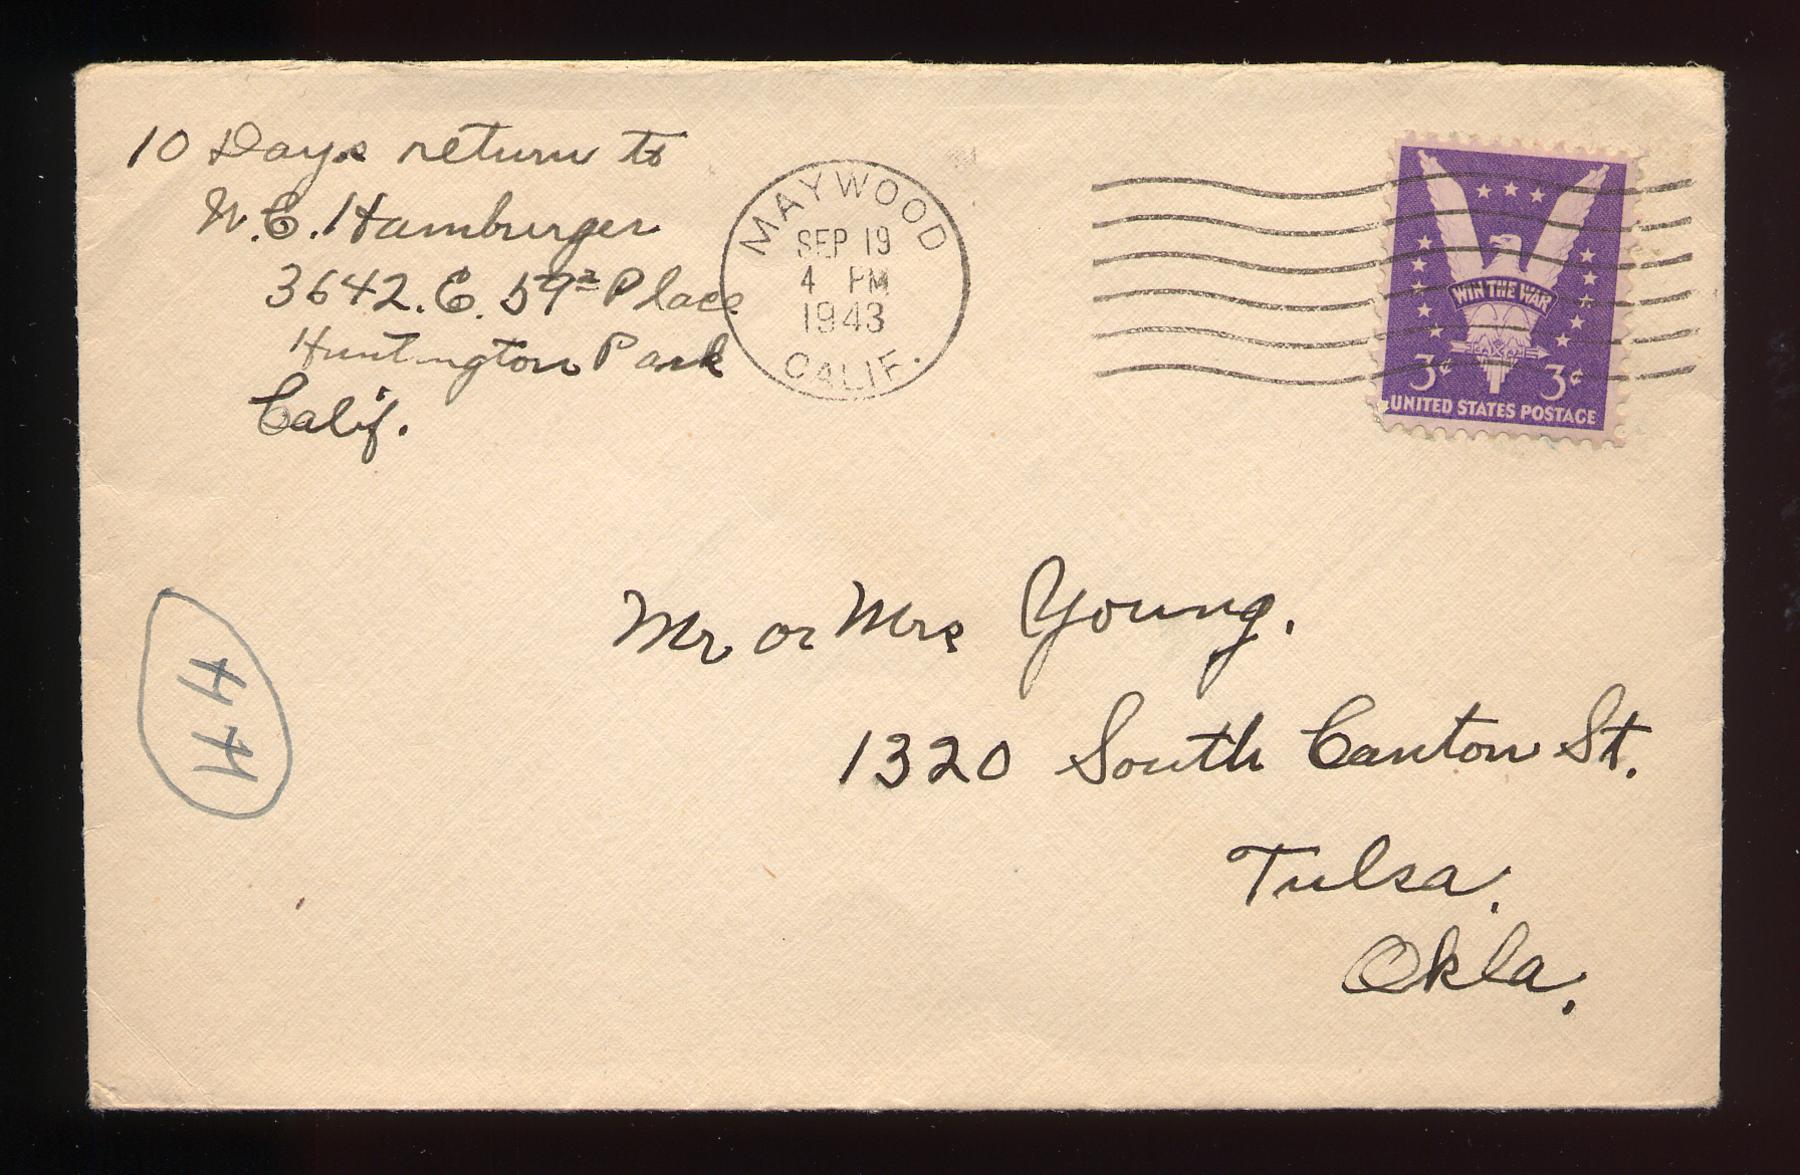 10 Days return to
W. E. Hamburger
3642. E. 57ᵗʰ Place
Huntington Park
Calif.
MAYWOOD
SEP 19
4 PM
1943
CALIF.
WIN THE WAR
3¢ 3¢
UNITED STATES POSTAGE
Mr or Mrs Young.
1320 South Canton St.
Tulsa.
Okla.
44